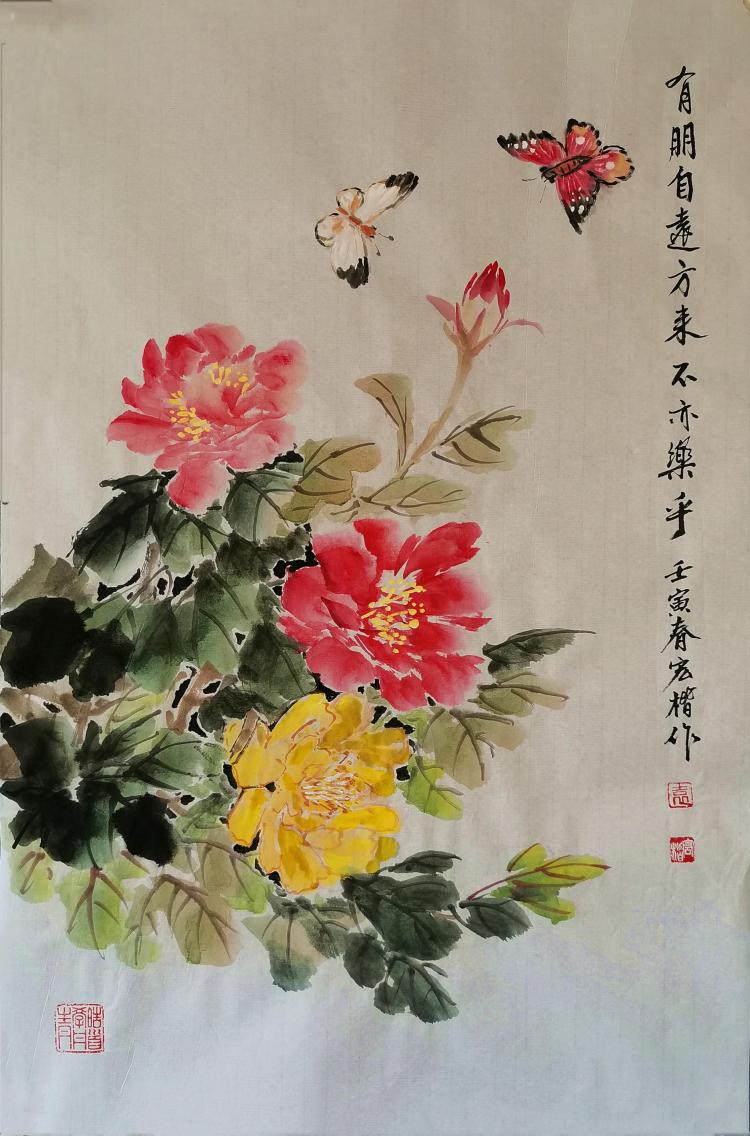 有朋自遠方来不亦樂乎壬寅春宏楷作
袁
宏楷